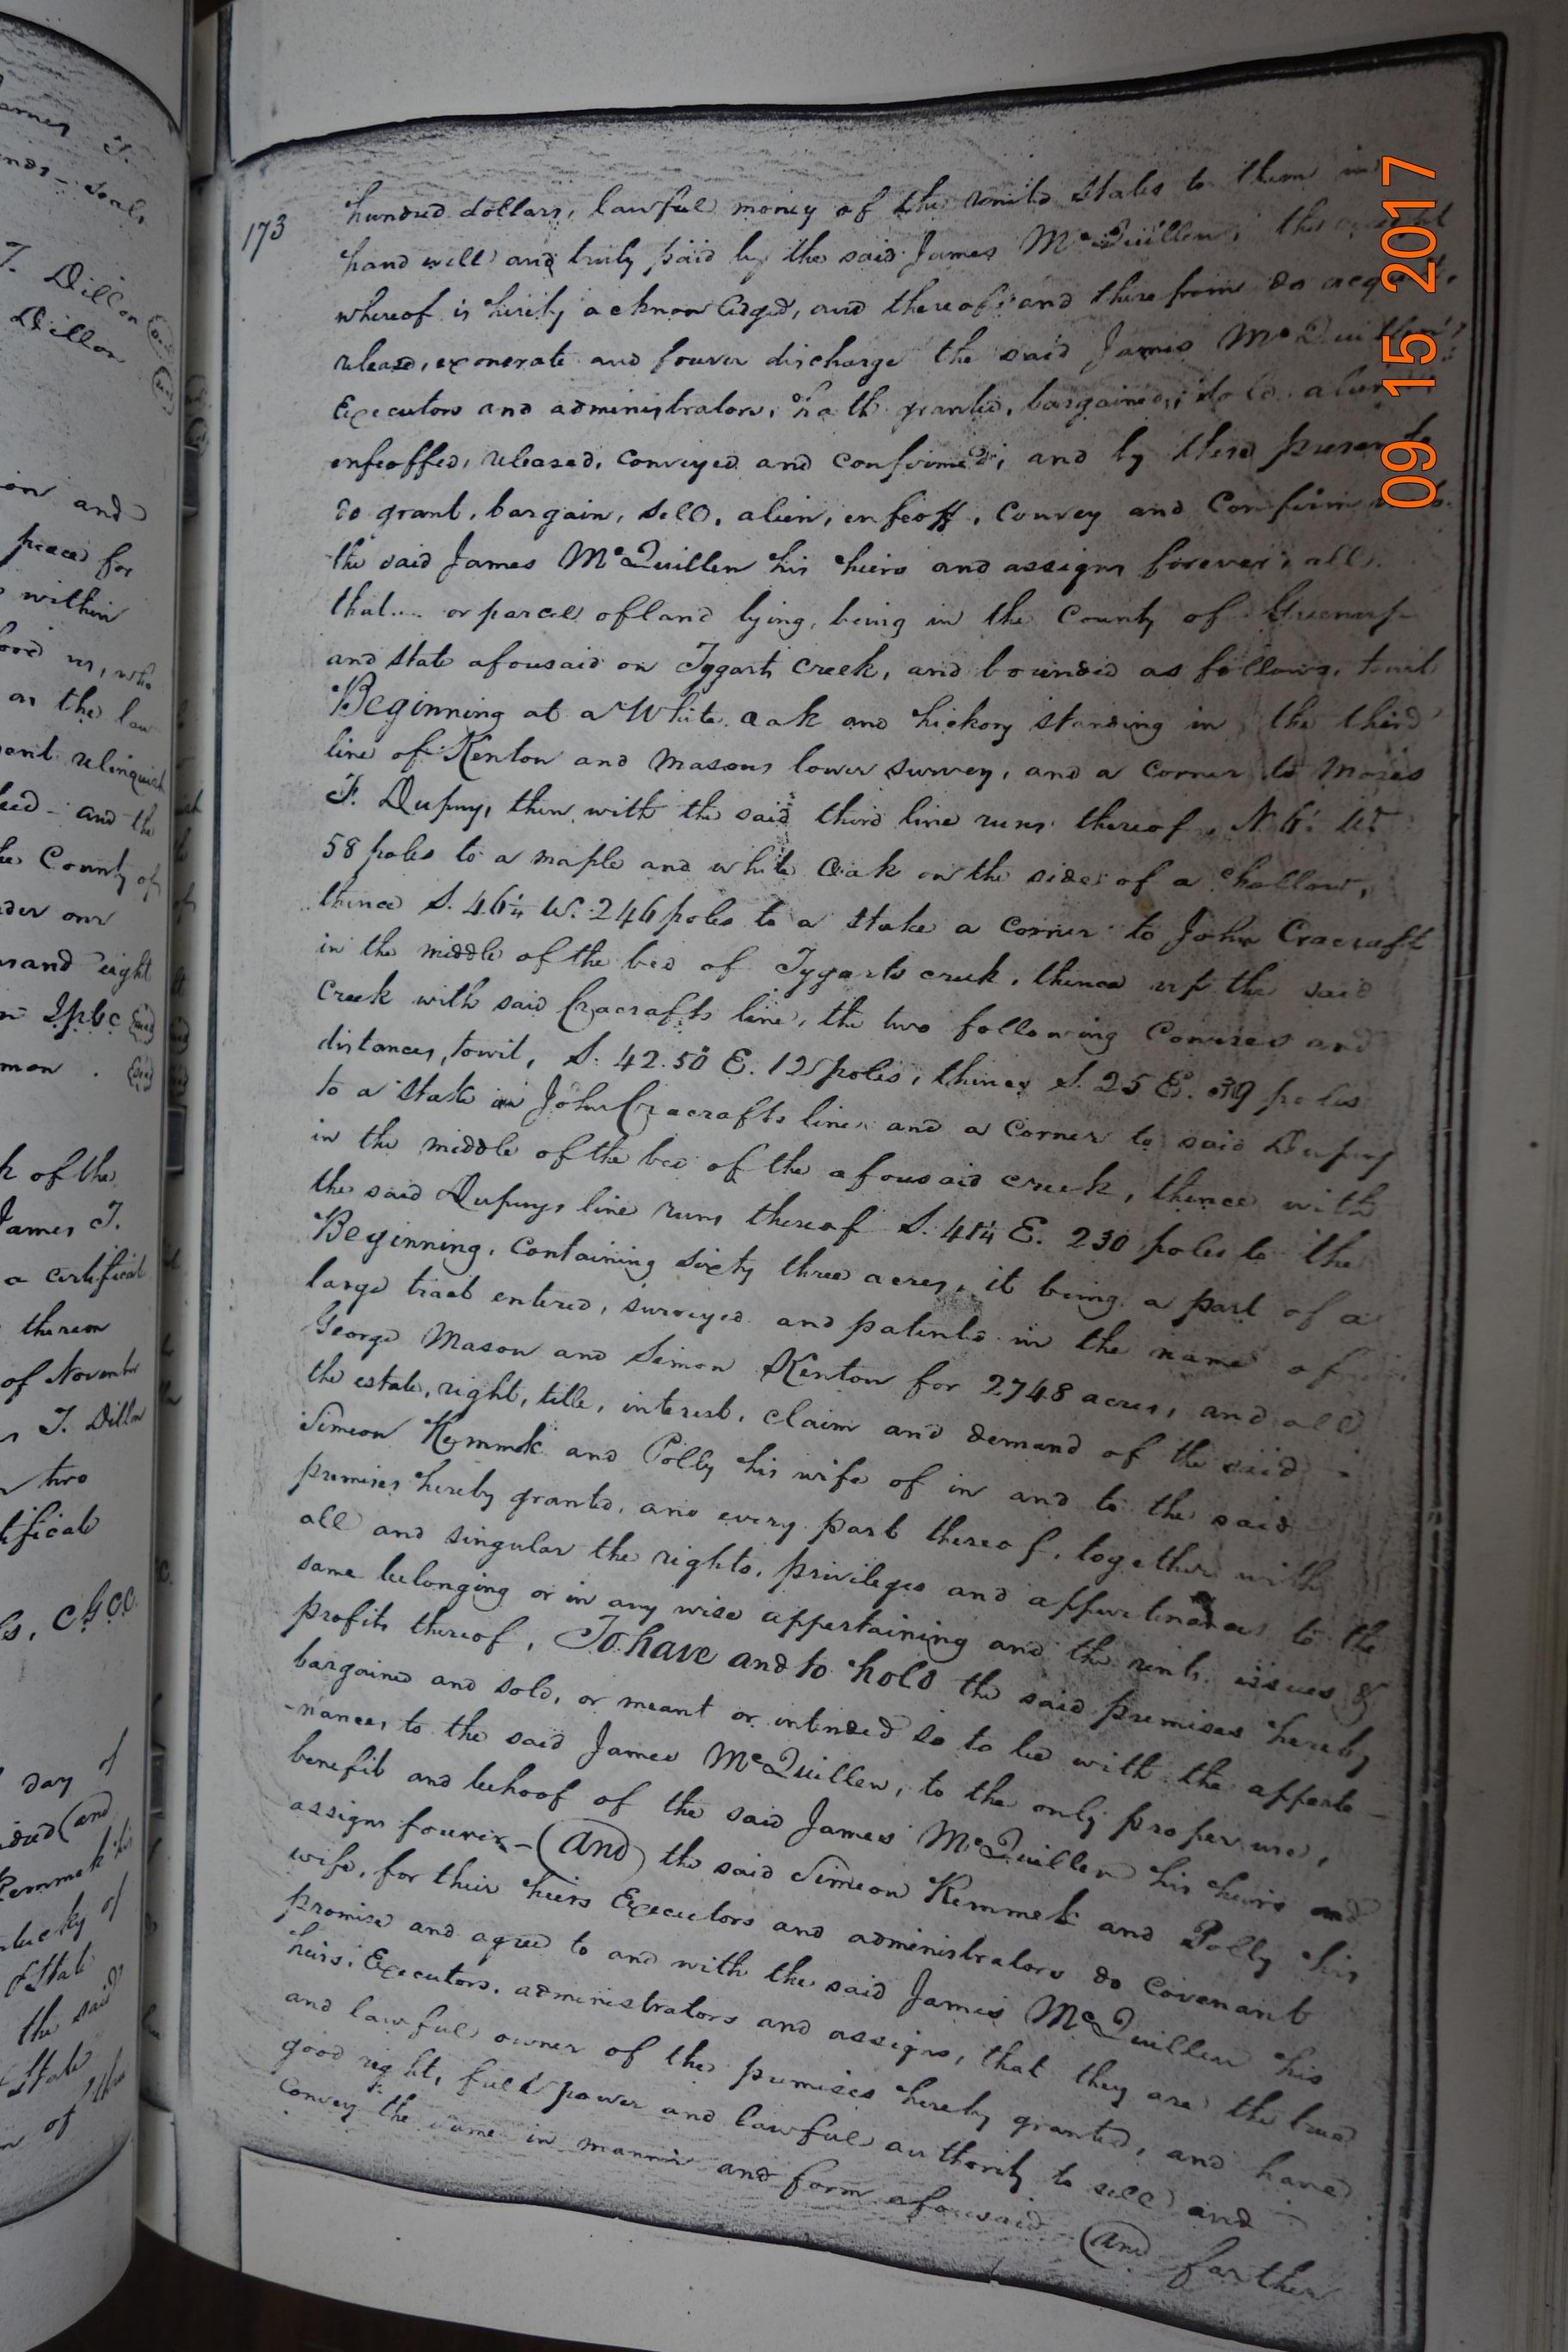 173
hundred dollars, lawful money of the United States to them in
hand well and truly paid by the said James McQuillen, the
whereof is hereby acknowledged, and thereof and therefrom do acquit,
release, exonerate and forever discharge the said James McQuillen,
Executors and administrators, hath granted, bargained, sold, alien
enfeoffed, released, conveyed and confirmed, and by these presents
do grant, bargain, sell, alien, enfeoff, convey and confirm unto
the said James McQuillen his heirs and assigns forever, all
that.... or parcel of land lying, being in the County of Greenup
and state aforesaid on Tygarts Creek, and bounded as follows, towit
Beginning at a White oak and hickory standing in the third
line of Kenton and Masons lower survey, and a corner to Moses
F. Dupuy, then with the said third line runs thereof N. 6. W.
58 poles to a maple and white Oak on the side of a hollow,
thence S. 46¼ W. 246 poles to a stake a corner to John Cracraft
in the middle of the bed of Tygarts creek, thence up the said
Creek with said Cracrafts line, the two following Courses and
distances, towit, S. 42.50 E. 12 poles, thence S. 25 E. 39 poles
to a stake in John Cracrafts line and a corner to said Dupuy
in the middle of the bed of the aforesaid creek, thence with
the said Dupuys line runs thereof S. E. 230 poles to the
Beginning, containing sixty three acres, it being a part of a
large tract entered, surveyed and patented in the name of
George Mason and Simon Kenton for 2748 acres, and all
the estate, right, title, interest, claim and demand of the said
Simeon Kemmek and Polly his wife of in and to the said
premises hereby granted, and every part thereof, together with
all and singular the rights, privileges and appurtenances to the
same belonging or in any wise appertaining and the rents issues &
profits thereof, To have and to hold the said premises hereby
bargained and sold, or meant or intended so to be with the apperte-
-nances to the said James McQuillen, to the only proper use,
benefit and behoof of the said James McQuillen his heirs and
assigns forever - (and) the said Simeon Kemmek and Polly his
wife, for their heirs Executors and administrators do covenant
promise and agree to and with the said James McQuillen his
heirs, Executors, administrators and assigns, that they are the true
and lawful owner of the premises hereby granted, and have
good right, full power and lawful authority to sell and
convey the same in manner and form aforesaid (and) farther
09 15 2017
James T.
Seals
T. Dillon
Dillon
on and
peace for
within
as the law
relinquish
and the
County of
under our
sand eight
of the
James T.
a certificate
thereon
of November
T. Dillon
two
day of
Kemmek his
State
the said
State
of